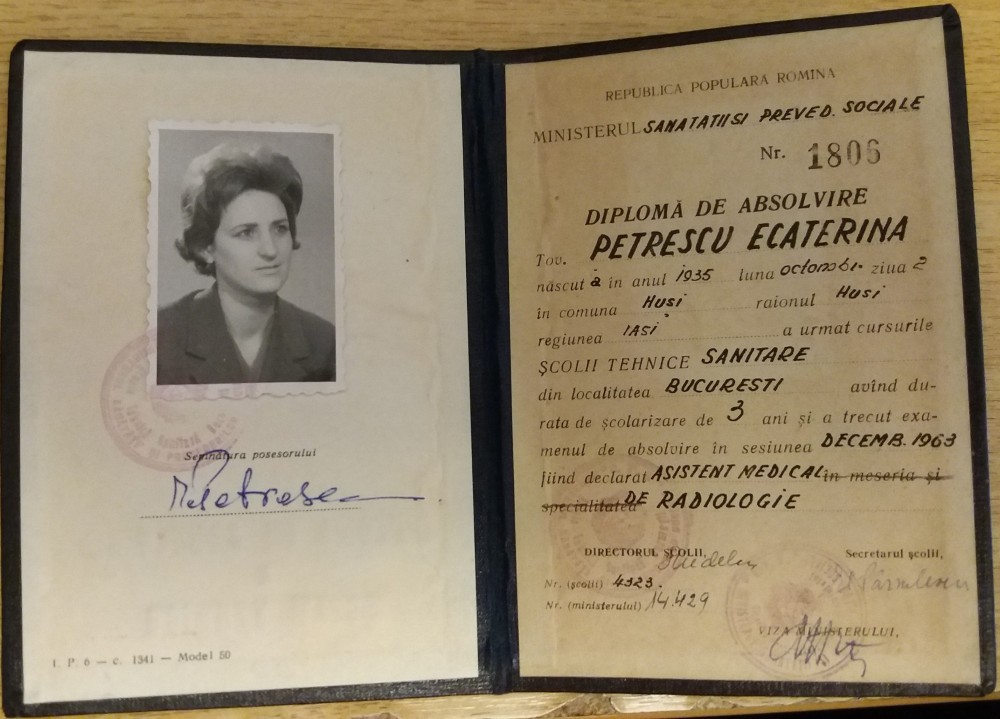 Semnătura posesorului
I. P. 6 — c. 1341 — Model 50
REPUBLICA POPULARĂ ROMINĂ
MINISTERUL SANATATII SI PREVED. SOCIALE
Nr. 1806
DIPLOMĂ DE ABSOLVIRE
Tov. PETRESCU ECATERINA
născut ă în anul 1935 luna octombr. ziua 2
în comuna Husi raionul Husi
regiunea IAȘI a urmat cursurile
ȘCOLII TEHNICE SANITARE
din localitatea BUCURESTI avînd du-
rata de școlarizare de 3 ani și a trecut exa-
menul de absolvire în sesiunea DECEMB. 1963
fiind declarat ASISTENT MEDICAL în meseria și
specialitatea DE RADIOLOGIE
DIRECTORUL ȘCOLII, Secretarul școlii,
Nr. (școlii) 4323
Nr. (ministerului) 14.429
VIZA MINISTERULUI,